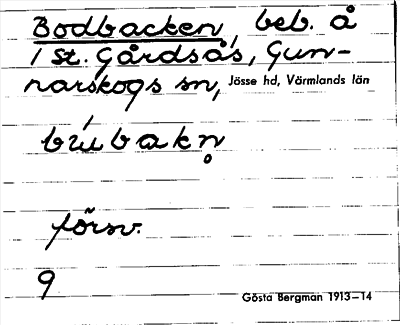 Bodbacken, beb. å
1 st. Gårdsås, Gun-
narskogs sn, Jösse hd, Värmlands län
försv.
9
Gösta Bergman 1913–14